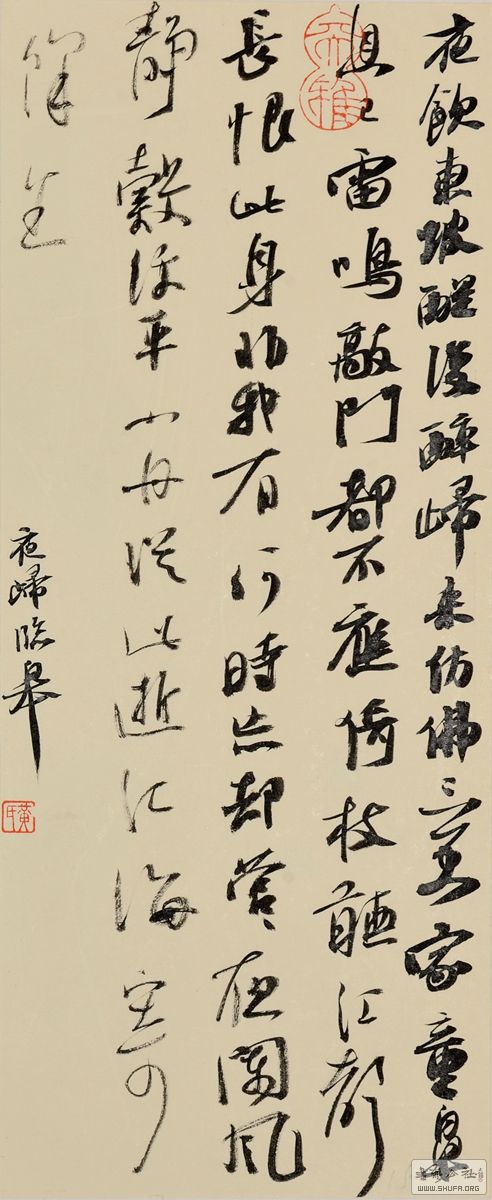 夜飲東坡醒復醉歸来仿佛三更家童鼻
息已雷鳴敲門都不應倚杖聽江聲
長恨此身非我有何時忘却營營夜闌風
静縠紋平小舟從此逝江海寄
餘生
夜歸臨皋
黄氏
书法公社
WWW.SHUFA.ORG